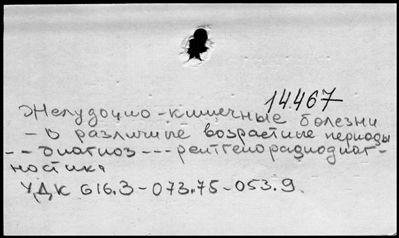 14467
Желудочно-кишечные болезни
- в различные возрастные периоды
-- диагноз --- рентгенорадиодиаг-
ностика
УДК 616.3-073.75-053.9.